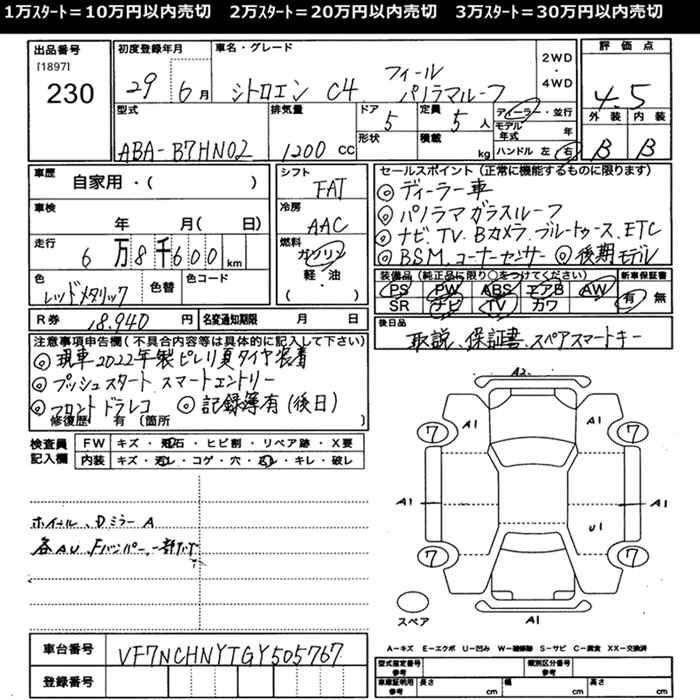 1万スタート＝10万円以内売切　2万スタート＝20万円以内売切　3万スタート＝30万円以内売切
出品番号
[1897]
230
初度登録年月
29 6月
車名・グレード
シトロエン C4 フィール パノラマルーフ
2WD・4WD
評価点
4.5
外装 内装
B B
型式
ABA-B7HN02
排気量
1200 cc
ドア
5
形状
定員
5人
積載 kg
ディーラー・並行
モデル年式 年
ハンドル 左 右
車歴
自家用・( )
車検
年 月( 日)
走行
6万8千600km
色
レッドメタリック
色替
色コード
シフト
FAT
冷房
AAC
燃料
ガソリン
軽・油
( )
R券 18,940円
名変通知期限 月 日
セールスポイント(正常に機能するものに限ります)
◎ディーラー車
◎パノラマガラスルーフ
◎ナビ、TV、Bカメラ、ブルートゥース、ETC
◎BSM、コーナーセンサー ◎後期モデル
装備品(純正品に限り○をつけてください)
PS PW ABS エアB AW
SR ナビ TV カワ
新車保証書
有 無
後日品
取説、保証書、スペアスマートキー
注意事項申告欄(不具合内容等は具体的に記入して下さい)
◎現車2022年製ピレリ夏タイヤ装着
◎プッシュスタート スマートエントリー
◎フロントドラレコ ◎記録簿有(後日)
修復歴 有 (箇所
検査員記入欄
FW キズ・飛石・ヒビ割・リペア跡・X要
内装 キズ・汚レ・コゲ・穴・スレ・キレ・破レ
ホイール、Dミラー A
各AU、Fバンパー、一部
A2
7 A1 A1 7
A1 A1
U1
7 7
スペア
A1
A－キズ E－エクボ U－凹み W－補修跡 S－サビ C－腐食 XX－交換済
車台番号
VF7NCHNYTGY505767
登録番号
型式指定番号 参考
類別区分番号 参考
車庫証明用 参考
長さ cm 幅 cm 高さ cm